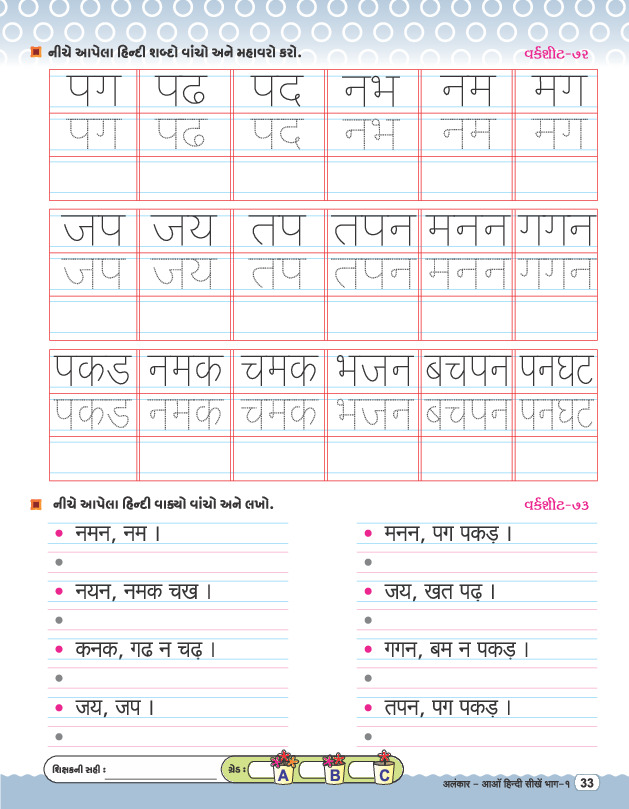 નીચે આપેલા હિન્દી શબ્દો વાંચો અને મહાવરો કરો. વર્કશીટ-૭૨
पग पढ पद नभ नम मग
पग पढ पद नभ नम मग
जप जय तप तपन मनन गगन
जप जय तप तपन मनन गगन
पकड नमक चमक भजन बचपन पनघट
पकड नमक चमक भजन बचपन पनघट
નીચે આપેલા હિન્દી વાક્યો વાંચો અને લખો. વર્કશીટ-૭૩
नमन, नम । मनन, पग पकड़ ।
नयन, नमक चख । जय, खत पढ़ ।
कनक, गढ न चढ़ । गगन, बम न पकड़ ।
जय, जप । तपन, पग पकड़ ।
શિક્ષકની સહી : ગ્રેડ : A B C
अलंकार – आओं हिन्दी सीखें भाग-१ 33